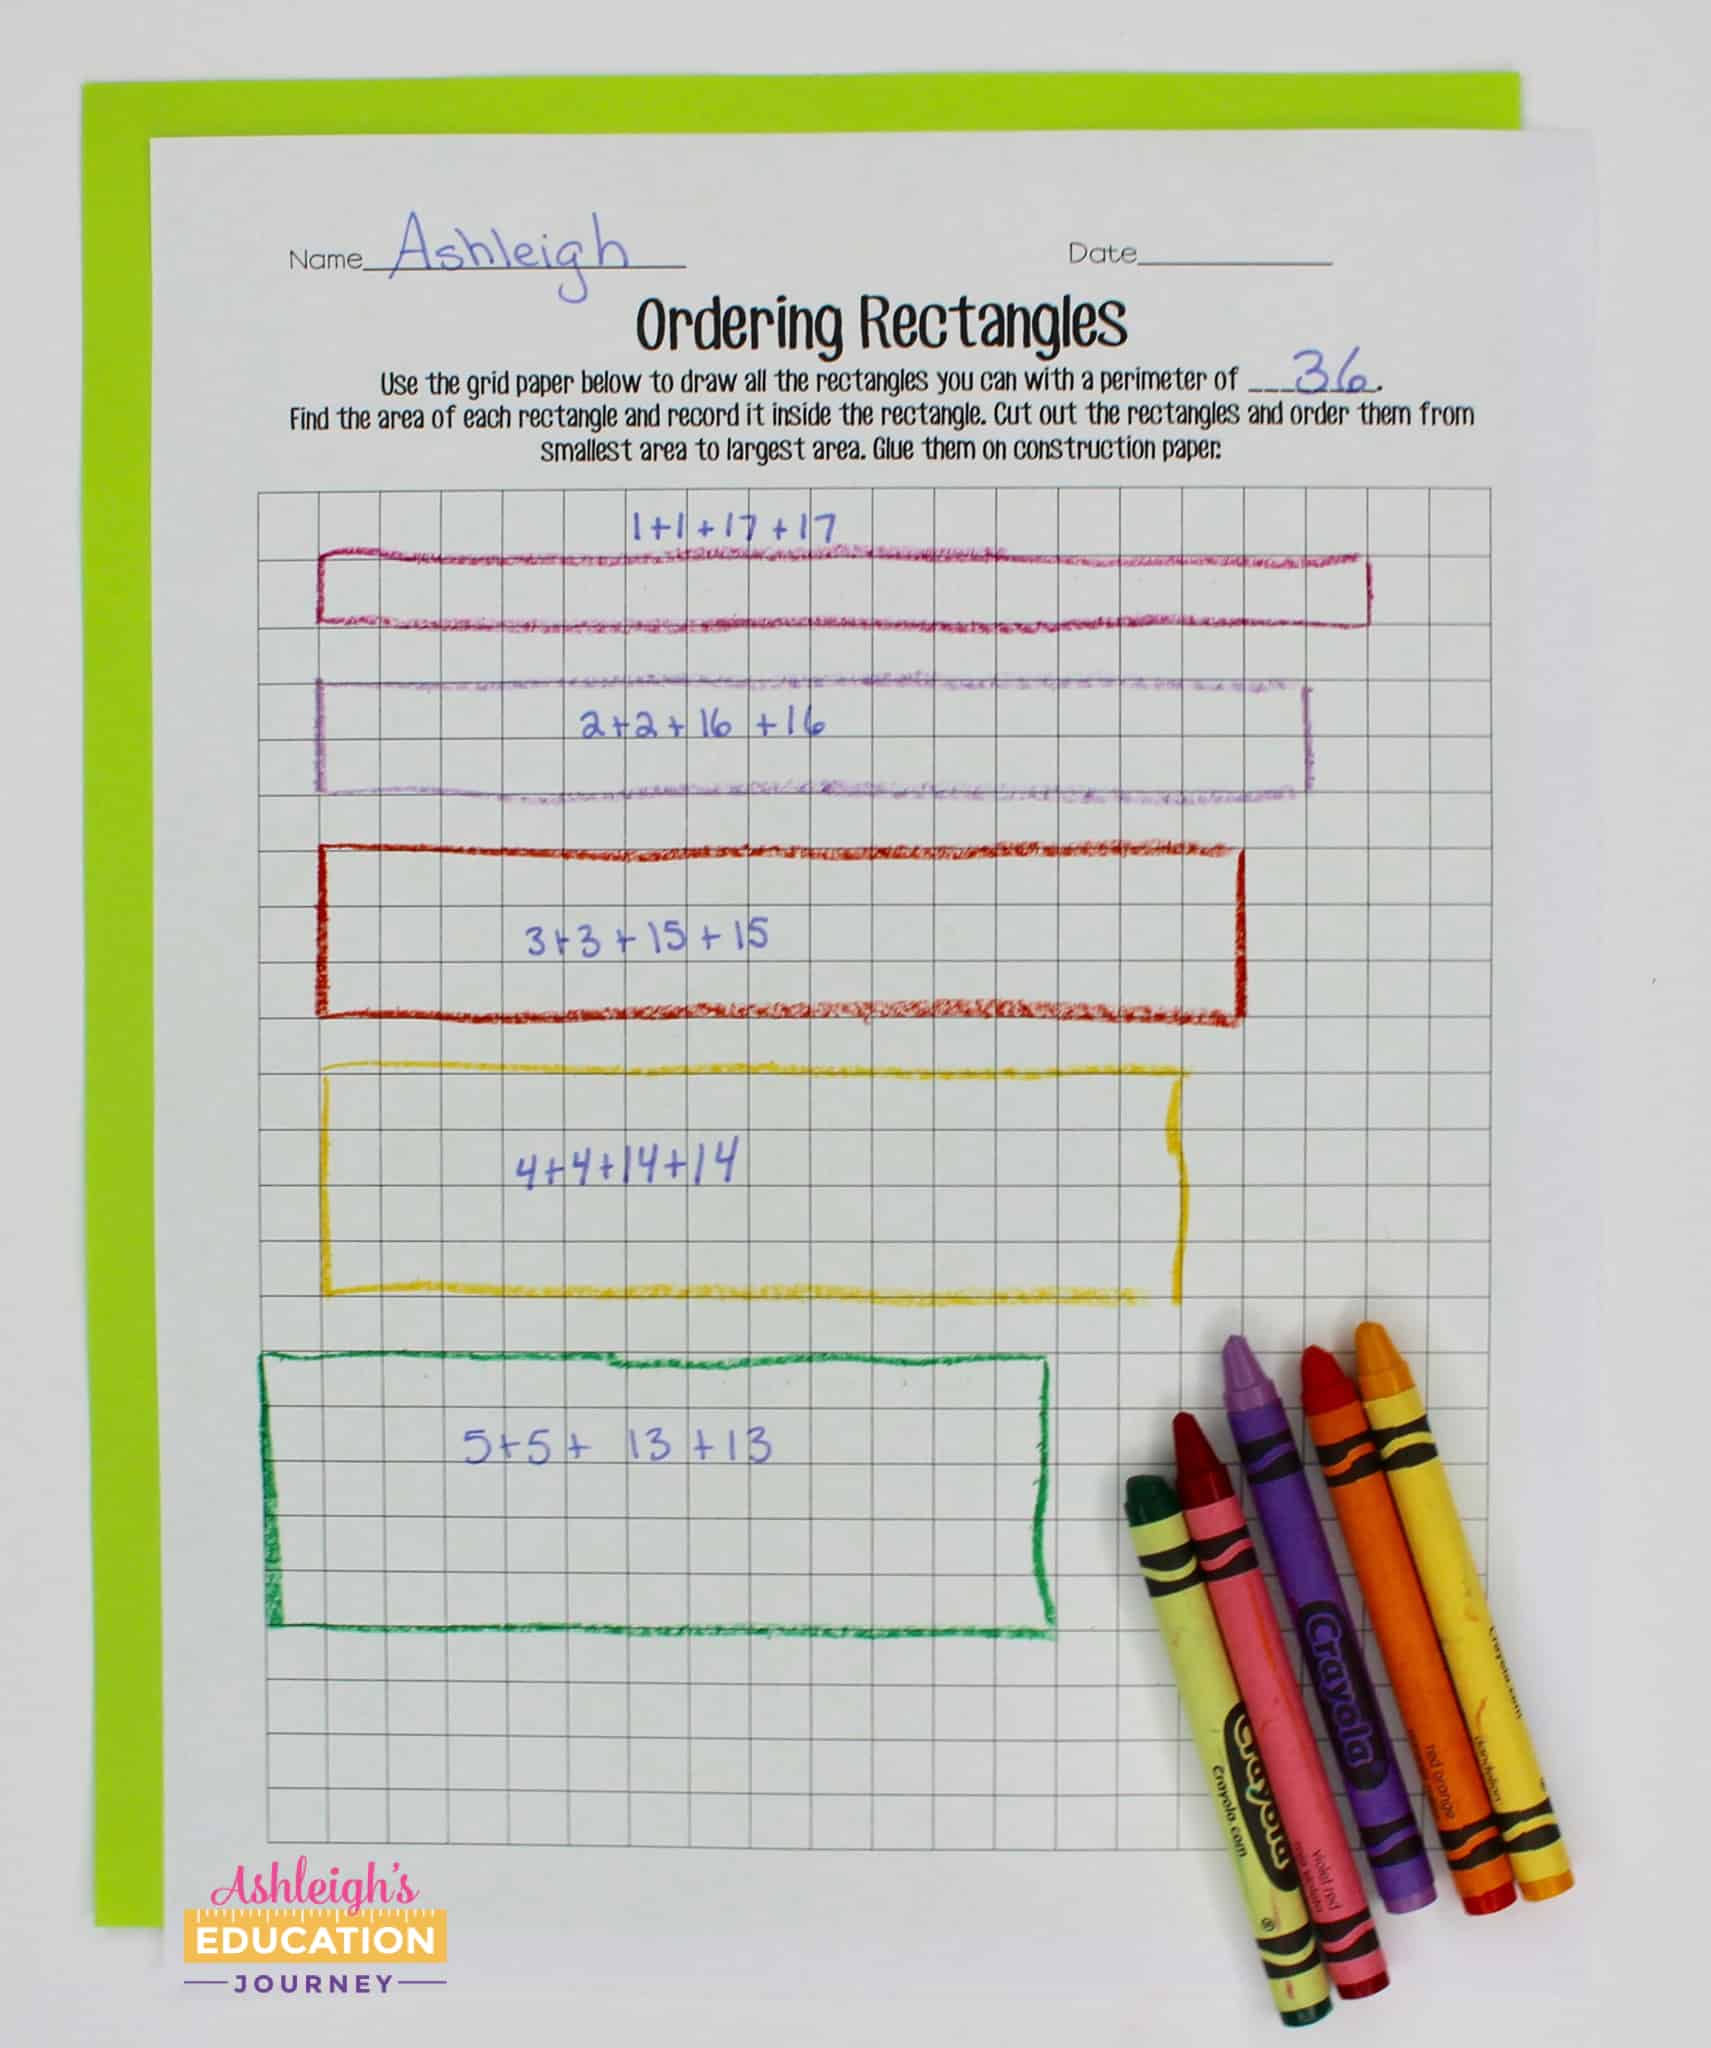 Name Ashleigh Date
Ordering Rectangles
Use the grid paper below to draw all the rectangles you can with a perimeter of 36.
Find the area of each rectangle and record it inside the rectangle. Cut out the rectangles and order them from
smallest area to largest area. Glue them on construction paper.
1+1+17+17
2+2+16+16
3+3+15+15
4+4+14+14
5+5+13+13
Crayola
Crayola.com
Crayola
violet red
red orange
dandelion
Crayola.com
Ashleigh's
EDUCATION
JOURNEY